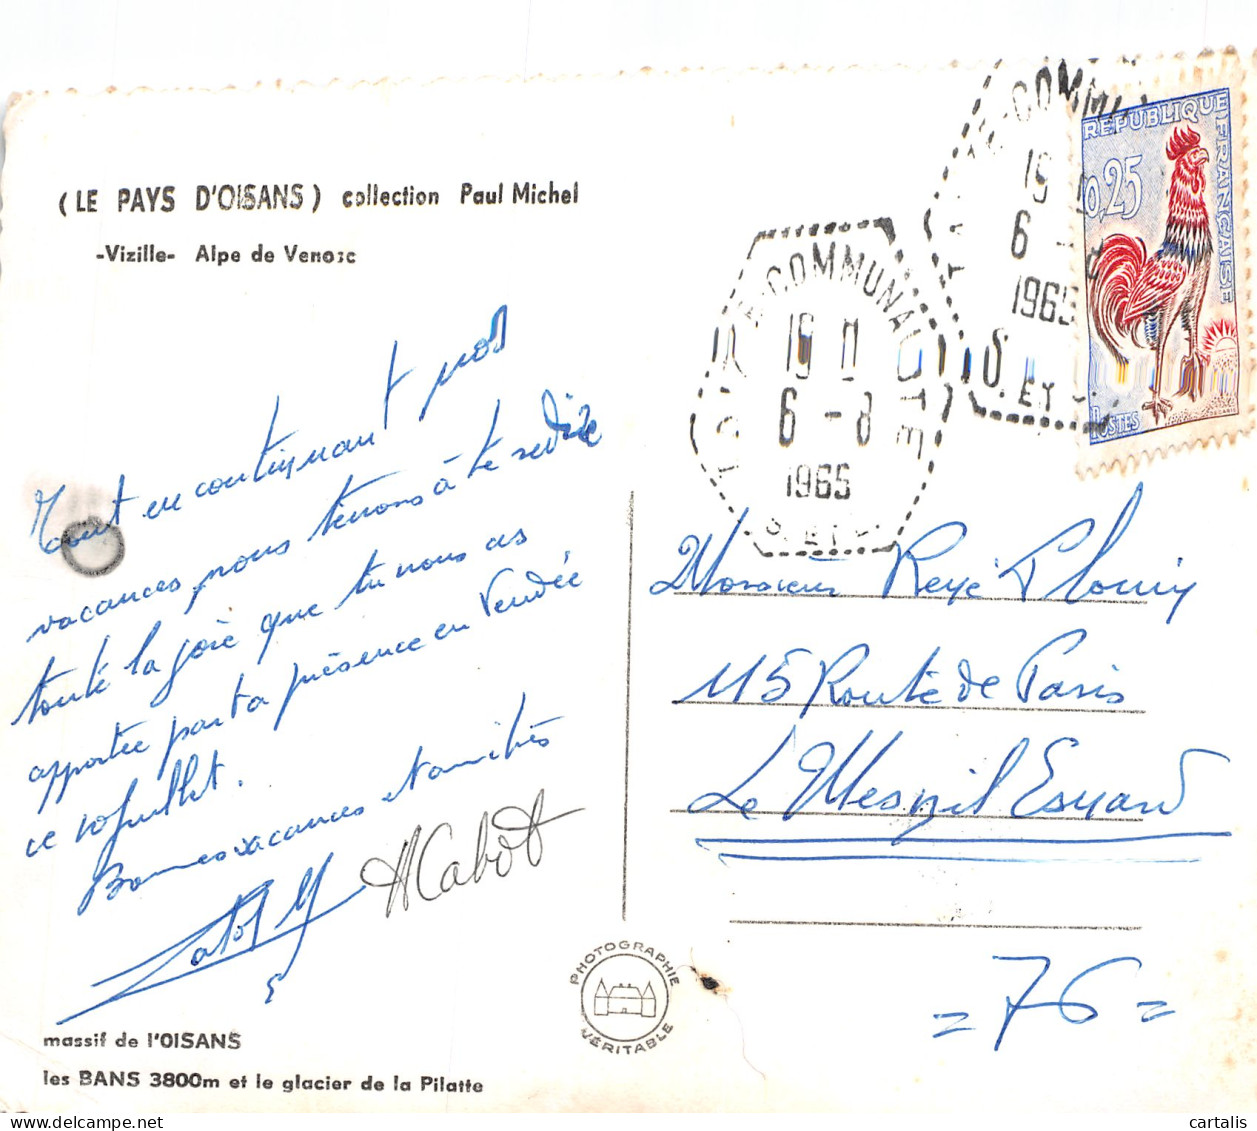 (LE PAYS D'OISANS) collection Paul Michel
-Vizille- Alpe de Venosc
Tout en continuant nos
vacances, nous tenons à te redire
toute la joie que tu nous as
apportée par ta présence en Vendée
ce 10 juillet.
Bonnes vacances et amitiés
Cabot
massif de l'OISANS
les BANS 3800m et le glacier de la Pilatte
PHOTOGRAPHIE
VÉRITABLE
COMMUNAUTE
19 H
6 - 8
1965
COMMU
19 H
6 - 8
1965
RÉPUBLIQUE FRANÇAISE
0,25
POSTES
Monsieur René
115 Route de Paris
Le Mesnil Esnard
= 76 =
cartalis